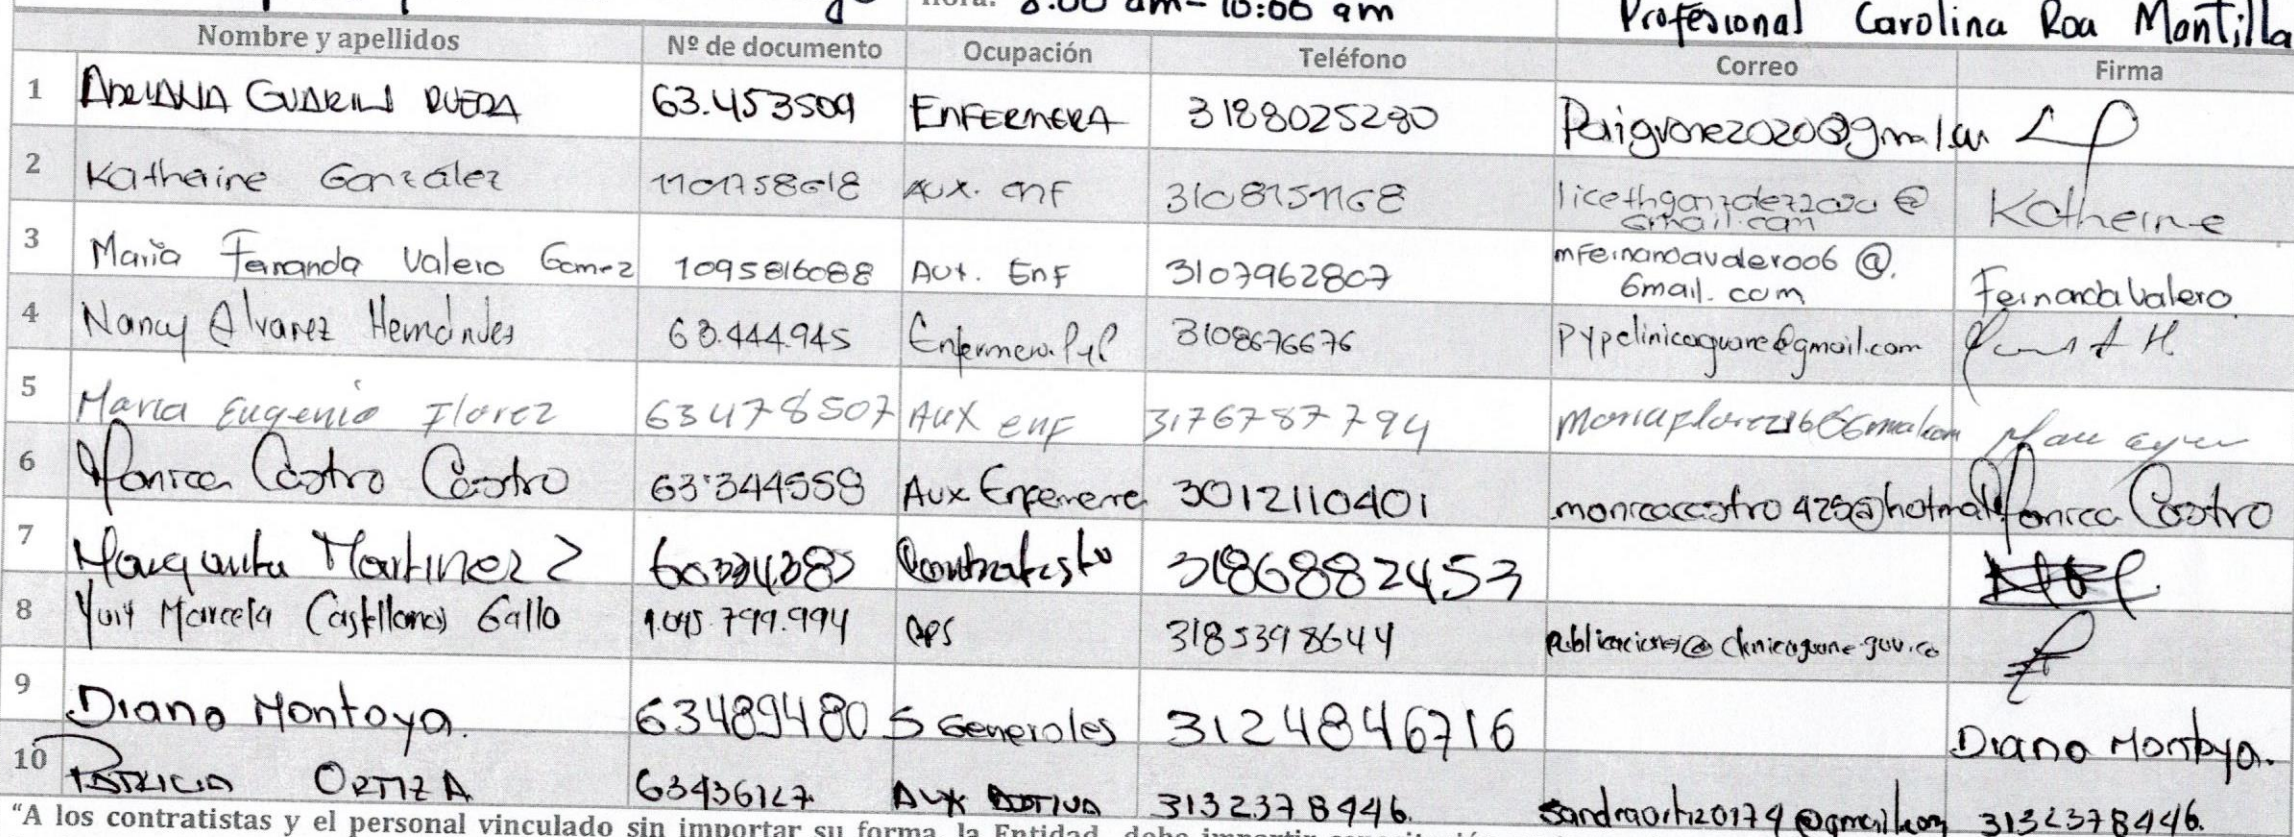 Hora: 8:00 am - 10:00 am
Profesional Carolina Roa Mantilla
Nombre y apellidos Nº de documento Ocupación Teléfono Correo Firma
1 GUARIN RUEDA 63.453509 ENFERMERA 3188025280
2 Katherine González Aux. enf Katherine
licethgonzalez2020@
Gmail.com
3 Maria Fernanda Valero Gomez 1095816088 Aux. Enf 3107962807 Fernanda Valero
mfernandavalero06@.
Gmail.com
4 Nancy Alvarez Hernández 63.444.945 Enfermera PyP 3108676676 pypclinicaguane@gmail.com
5 Maria Eugenia Florez 63478507 Aux enf 3176787794
6 Monica Castro Castro 63'344558 Aux Enfermere 3012110401 monicacastro425@hotmail Monica Castro
7 Margarita Martinez Contratista 3186882453
8 Yurt Marcela Castellanos Gallo CPS 3185398644 publicaciones@clinicaguane.gov.co
9 Diana Montoya. 63489480 S Generales 3124846716 Diana Montoya.
10 PATRICIA ORTIZ A 63436127 AUX 3132378446. sandraortiz20174@gmail.com 3132378446.
"A los contratistas y el personal vinculado sin importar su forma, la Entidad debe impartir capacitación